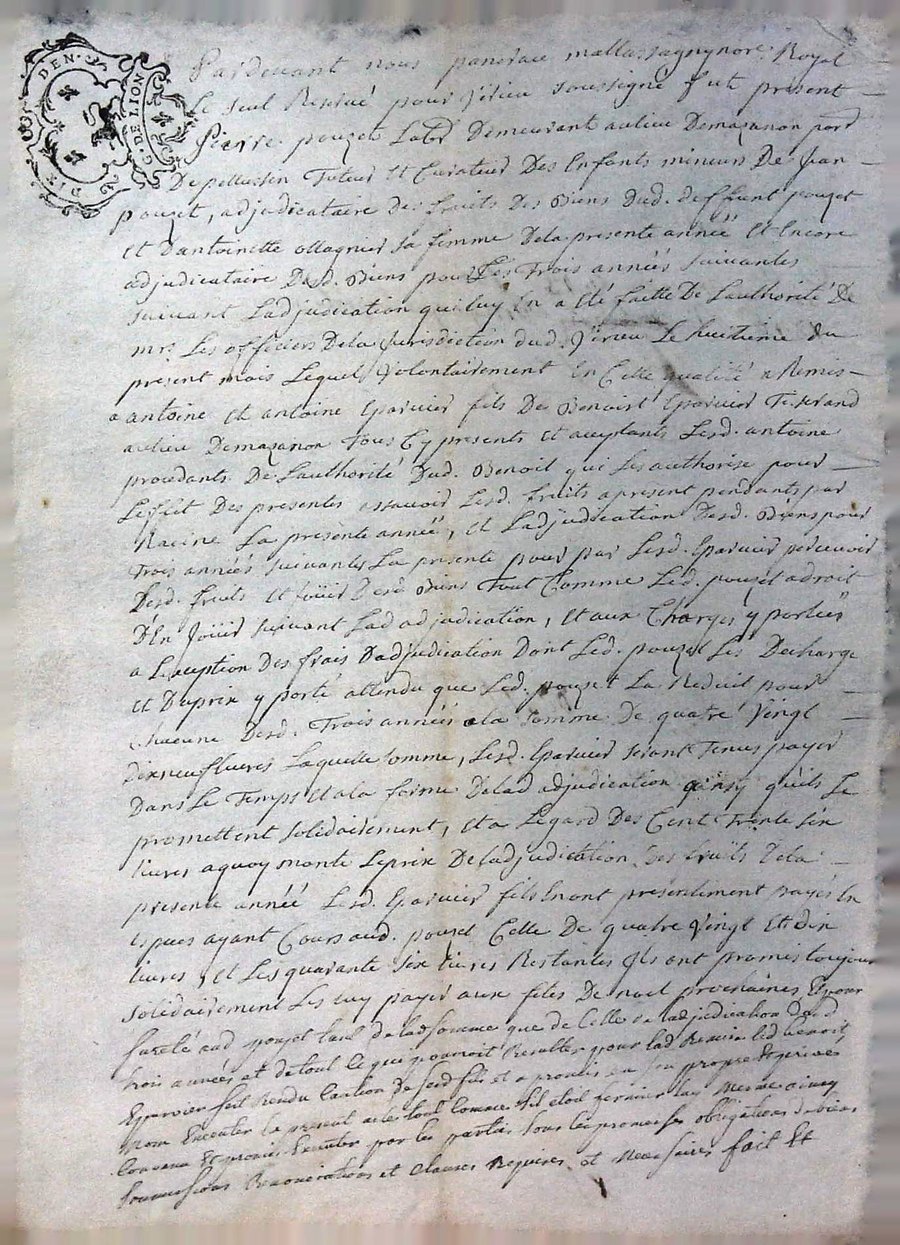 DIX DEN. G. DE LION
Pardevant nous pancrace mallassagny nore. Royal
Le seul Reservé pour Virieu soussigné fut présent
Pierre pouzet Labr. Demeurant au lieu Demazanon parr.
Depellussin Tuteur et Curateur Des Enfants mineurs De Jean
pouzet, adjudicataire Des fruits Des Biens Dud. deffunt pouzet
et D'antoinette ollagnier sa femme Dela presente année Et Encore
adjudicataire Desd. Biens pour Les Trois années suivantes
suivant Ladjudication qui luy En a été faitte De Lauthorité De
mrs. Les officiers Dela Jurisdiction dud. Virieu Le huitieme du
present mois Lequel Volontairement En Cette qualité a Remis
a antoine et antoine Eparvier fils De Benoist Eparvier Tisserand
au lieu Demazanon Tous Cy presents et acceptants Lesd. antoine
procedants De Lauthorité Dud. Benoit qui Les authorise pour
Leffet Des presentes assavoir Lesd. fruits apresent pendants par
Racine La presente année, et Ladjudication Desd. Biens pour
Trois années suivantes La presente pour par Lesd. Eparvier percevoir
Desd. fruits et Jouir Desd. Biens Tout Comme Led. pouzet a droit
D'En Joüir suivant Lad adjudication, et aux Charges y portées
a Lexception Des frais Dadjudication Dont Led. pouzet Les Decharge
et Du prix y porté attendu que Led. pouzet La Reduit pour
chacune Desd. Trois années a la somme De quatre Vingt
Dixneuf livres Laquelle somme, Lesd. Eparvier seront Tenus payer
Dans Le Temps et a la forme Delad adjudication ainsy qu'ils Le
promettent solidairement, et a Legard Des Cent Trente six
livres aquoy monte Le prix De Ladjudication Des fruits Dela
presente année Lesd. Eparvier fils En ont presentement payés En
Especes ayant Cours aud. pouzet Celle De quatre Vingt Et dix
livres, et Les quarante six livres Restantes Ils ont promis toujours
solidairement Les luy payer aux fêtes De noel prochaines Et pour
sureté aud. pouzet tant de lad somme que de Celle de ladjudication desd
trois années et de tout ce que pourroit Resulter pour lad Remise led benoit
Eparvier s'est Rendu Caution de sesd fils et a promis en son propre Et privé
nom Executer le present acte tout comme s'il etoit fermier luy Mesme ainsy
Convenu Et promis Executer par les parties sous les promesses obligations de biens
soumissions Renonciations et Clauses Requises et Necessaires fait Et